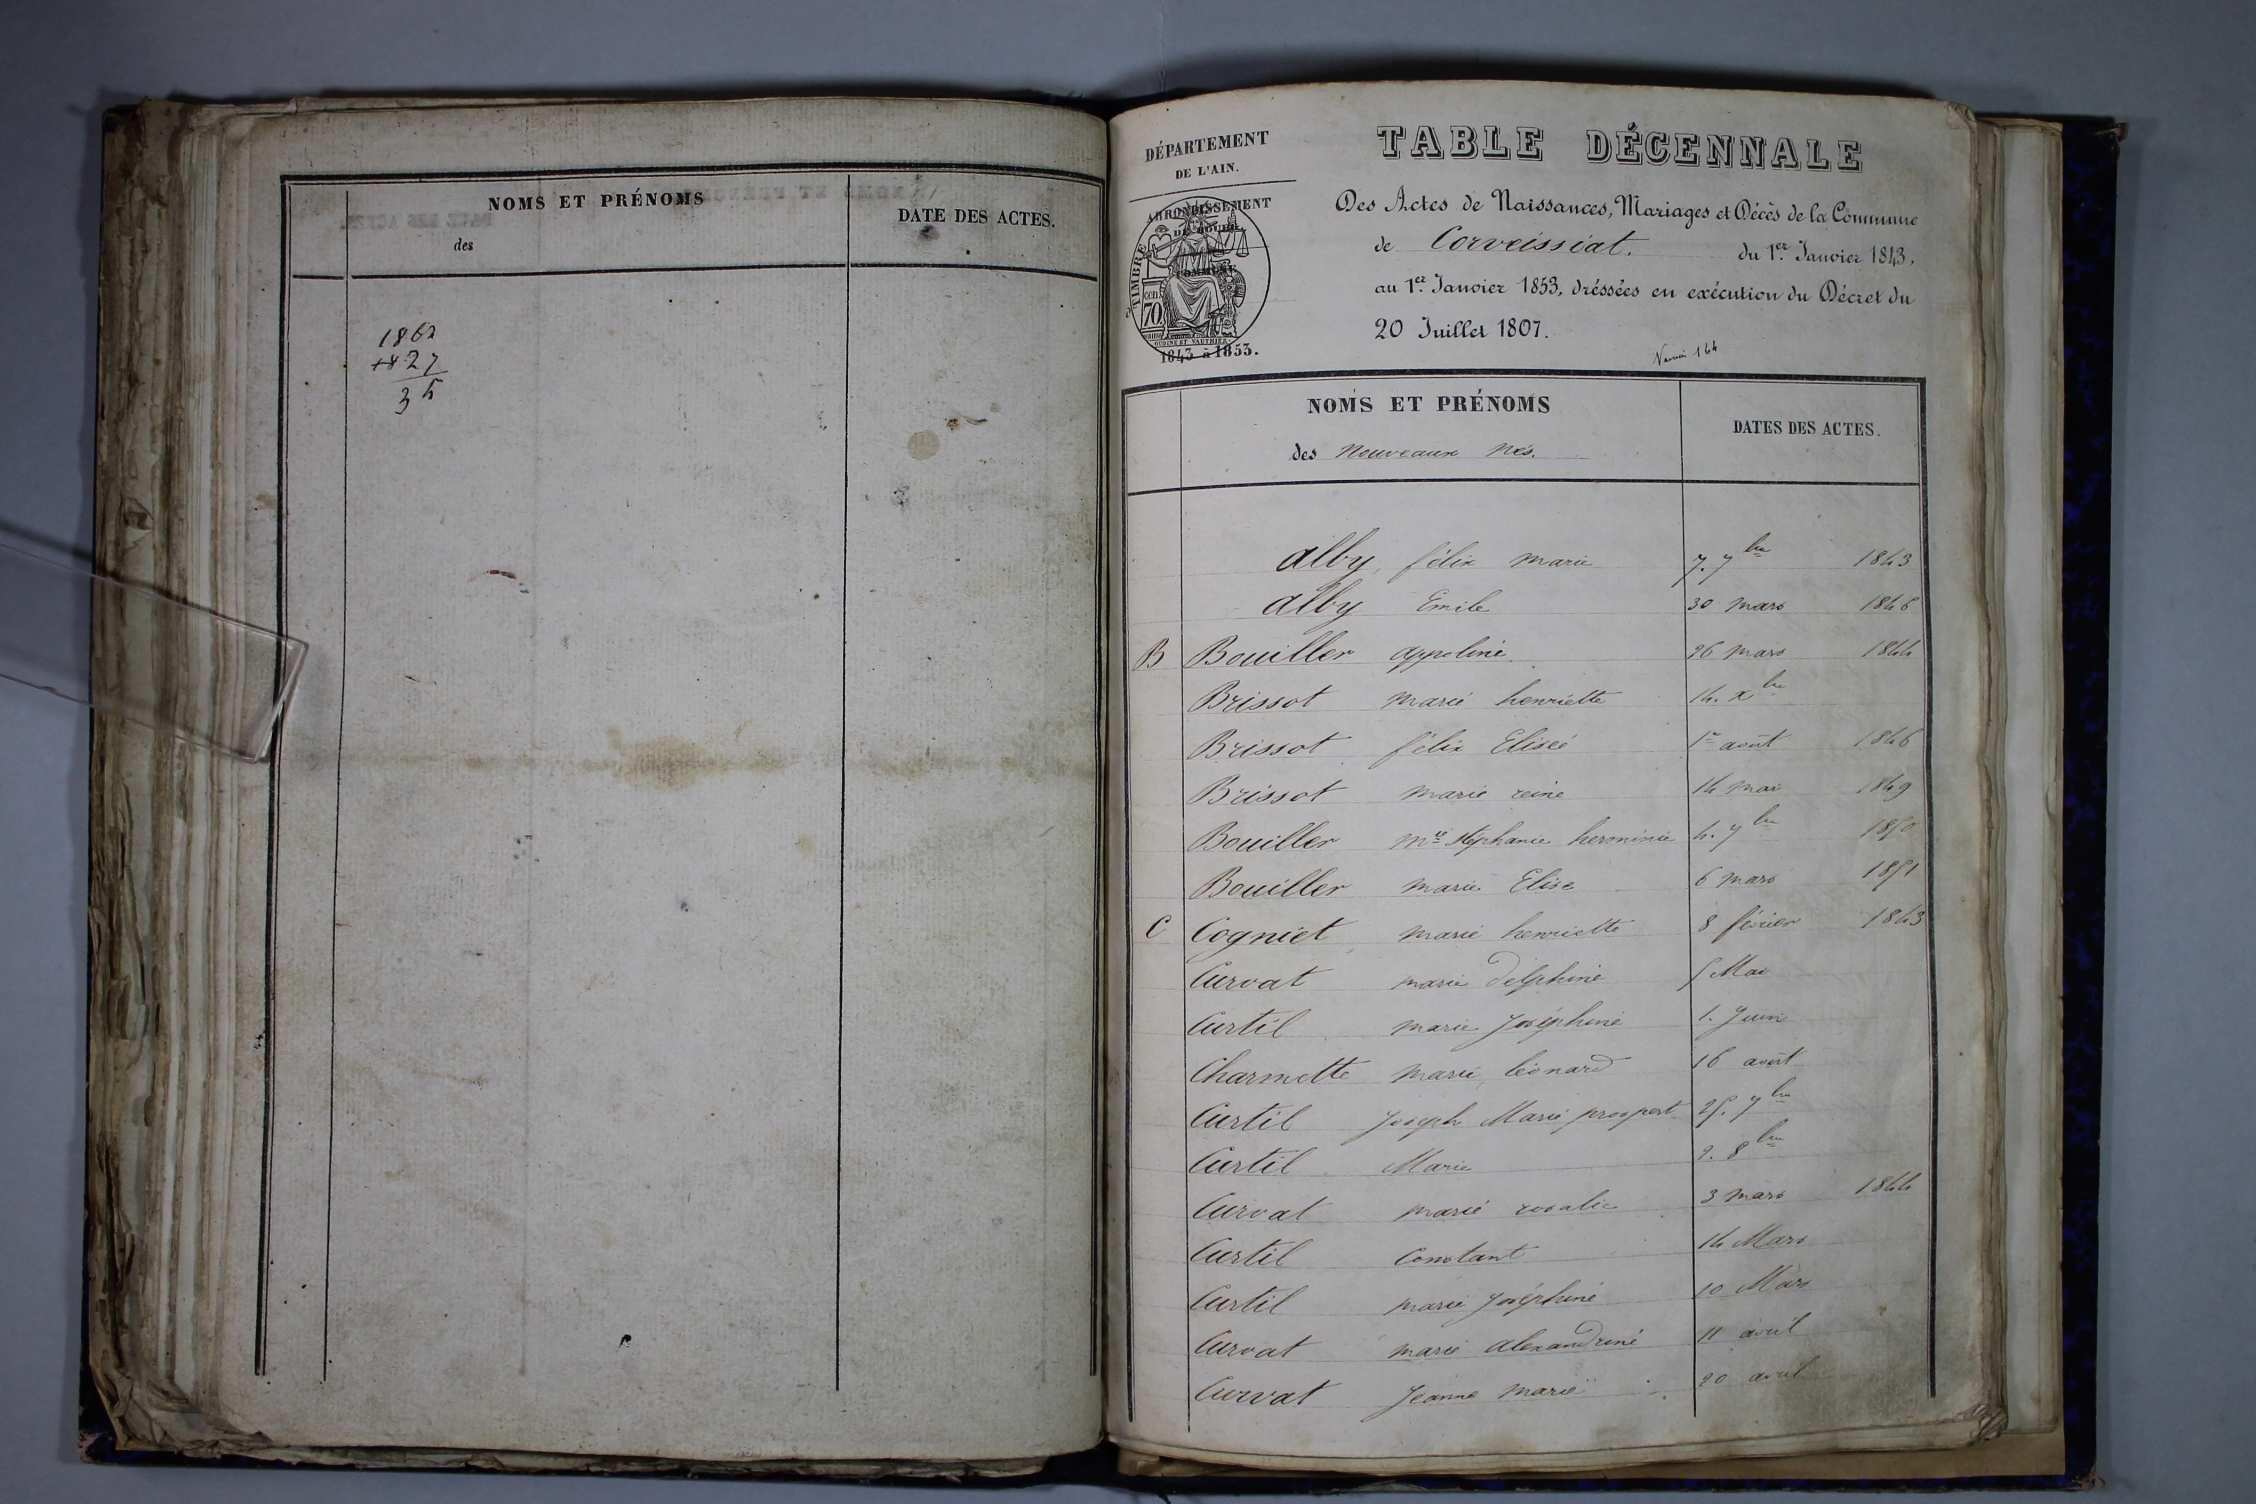 NOMS ET PRÉNOMS
des
DATE DES ACTES.
1862
1827
35
DÉPARTEMENT
DE L'AIN.
ARRONDISSEMENT
DE BOURG.
COMMUNE
TIMBRE
70
1843 à 1853.
TABLE DÉCENNALE
Des Actes de Naissances, Mariages et Décès de la Commune
de Corveissiat. du 1er Janvier 1843,
au 1er Janvier 1853, dréssées en exécution du Décret du
20 Juillet 1807.
NOMS ET PRÉNOMS
des Nouveaux Nés.
DATES DES ACTES.
alby félix marie 7. 7bre 1843
alby Emile 30 mars 1846
B Bouiller appoline 26 mars 1844
Brissot marie henriette 14. xbre
Brissot félix Elisée 1er août 1846
Brissot marie reine 14 mai 1849
Bouiller mie stéphanie herminie 4. 7bre 1850
Bouiller marie Elise 6 mars 1851
C Cogniet marie henriette 8 février 1843
Curvat marie delphine 5 Mai
Curtil marie Joséphine 1. Juin
Charmette marie léonard 16 août
Curtil Joseph Marie prospert 25. 7bre
Curtil Marie 2. 8bre
Curvat marie rosalie 3 mars 1844
Curtil Constant 14 Mars
Curtil marie Joséphine 20 Mars
Curvat marie alexandrine 11 avril
Curvat Jeanne marie 20 avril